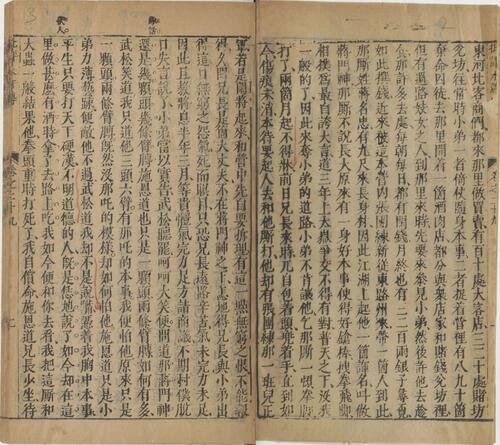 東河北客商們都來那里做買賣有百十處大客店三二十處賭坊
兌坊往常時小弟一者倚仗隨身本事二者捉着營里有八九十箇
弃命囚徒去那里開着一箇酒肉店都分與眾店家和賭錢兌坊里
但有過路妓女之人到那里來時先要來參見小弟然後許他去趁
食那許多去處每朝每日都有閑錢月終也有三二百兩銀子尋覔
如此撰錢近來被這本營內張團練新從東路州來帶一箇人到此
那厮姓蔣名忠有九尺來長身材因此江湖上起他一箇諢名叫做
蔣門神那厮不說長大原來有一身好本事使得好鎗棒拽拳飛脚
相撲為最自誇大言道三年上太嶽爭交不曾有對普天之下沒我
一般的了因此來奪小弟的道路小弟不肯讓他乞那厮一頓拳脚
打了兩箇月起不得牀前日兄長來時兀自包着頭兜着手直到如
今傷痕未消本待要起人去和他厮打他却有張團練那一班兒正
軍若是鬧將起來和營中先自要折理有這一點無窮之恨不能報
得久聞兄長是箇大丈夫不在蔣門神之下怎地得兄長與小弟出
得這口無窮之怨氣死而瞑目只恐兄長遠路辛苦氣未完力未足
因此且教將息半年三月等貴體氣完力足方請商議不期村僕脫
口失言說了小弟當以實告武松聽罷呵呵大笑便問道那蔣門神
還是幾顆頭幾條臂膊施恩道也只是一顆頭兩條臂膊如何有多
武松笑道我只道他三頭六臂有那吒的本事我便怕他原來只是
一顆頭兩條臂膊既然沒那吒的模樣却如何怕他施恩道只是小
弟力薄藝踈便敵他不過武松道我却不是說嘴憑着我胸中本事
平生只要打天下硬漢不明道德的人既是恁地說了如今却在這
里做甚麽有酒時拿了去路上吃我如今便和你去看我把這厮和
大蟲一般結果他拳頭重時打死了我自償命施恩道兄長少坐待